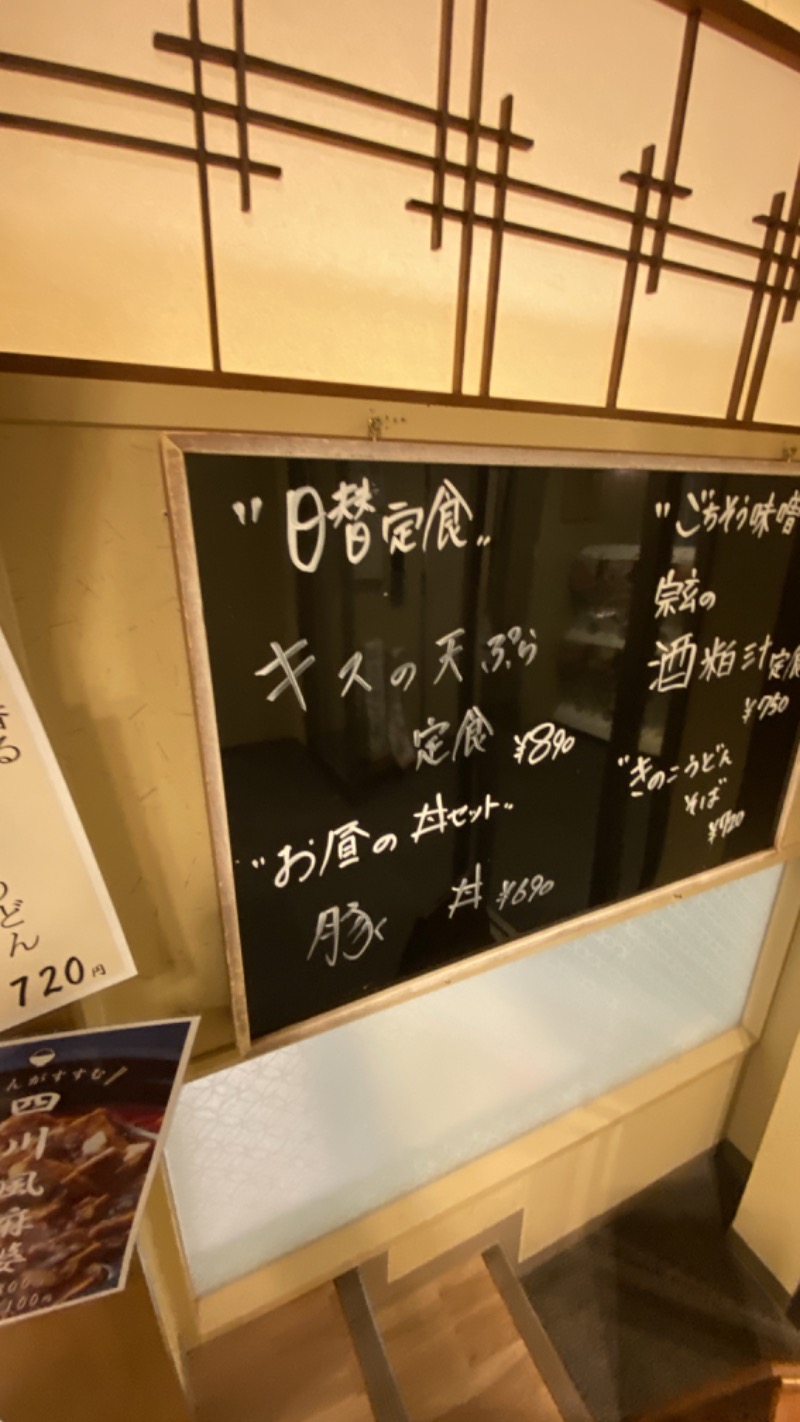 "日替定食"
キスの天ぷら
定食 ¥890
"お昼の丼セット"
豚丼 ¥690
"ごちそう味噌
宗玄の
酒粕汁定食
¥750
"きのこうどん
そば"
¥720
うどん
720円
んがすすむ
四川風麻婆